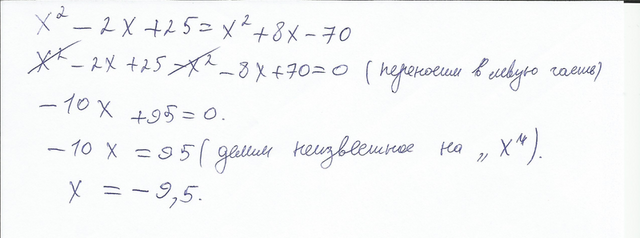 x² - 2x + 25 = x² + 8x - 70
x² - 2x + 25 - x² - 8x + 70 = 0 (переносим в левую часть)
-10x + 95 = 0.
-10x = 95 (делим неизвестное на „x").
x = -9,5.